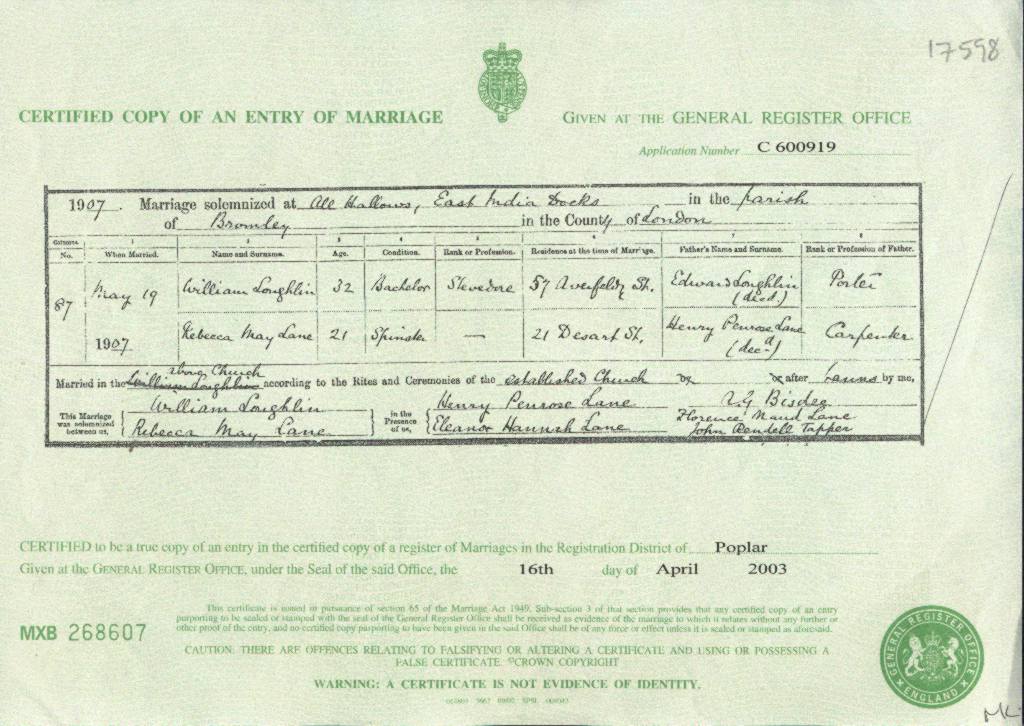 17598
CERTIFIED COPY OF AN ENTRY OF MARRIAGE
GIVEN AT THE GENERAL REGISTER OFFICE
Application Number C 600919
1907. Marriage solemnized at All Hallows, East India Docks in the parish
of Bromley in the County of London
Columns. 1 2 3 4 5 6 7 8
No. When Married. Name and Surname. Age. Condition. Rank or Profession. Residence at the time of Marriage. Father's Name and Surname. Rank or Profession of Father.
87 May 19 William Loughlin 32 Bachelor Stevedore 57 Averfeldy St. Edward Loughlin (dec'd.) Porter
1907 Rebecca May Lane 21 Spinster — 21 Desart St. Henry Penrose Lane (decd) Carpenter
above Church
Married in the William Loughlin according to the Rites and Ceremonies of the established Church by or after banns by me,
This Marriage was solemnized between us, William Loughlin in the Presence of us, Henry Penrose Lane Bisdee
Rebecca May Lane Eleanor Hannah Lane Florence Maud Lane
John Rendell Tapper
CERTIFIED to be a true copy of an entry in the certified copy of a register of Marriages in the Registration District of Poplar
Given at the GENERAL REGISTER OFFICE, under the Seal of the said Office, the 16th day of April 2003
This certificate is issued in pursuance of section 65 of the Marriage Act 1949. Sub-section 3 of that section provides that any certified copy of an entry
purporting to be sealed or stamped with the seal of the General Register Office shall be received as evidence of the marriage to which it relates without any further or
other proof of the entry, and no certified copy purporting to have been given in the said Office shall be of any force or effect unless it is sealed or stamped as aforesaid.
MXB 268607
CAUTION: THERE ARE OFFENCES RELATING TO FALSIFYING OR ALTERING A CERTIFICATE AND USING OR POSSESSING A
FALSE CERTIFICATE. ©CROWN COPYRIGHT
WARNING: A CERTIFICATE IS NOT EVIDENCE OF IDENTITY.
GENERAL REGISTER OFFICE
ENGLAND